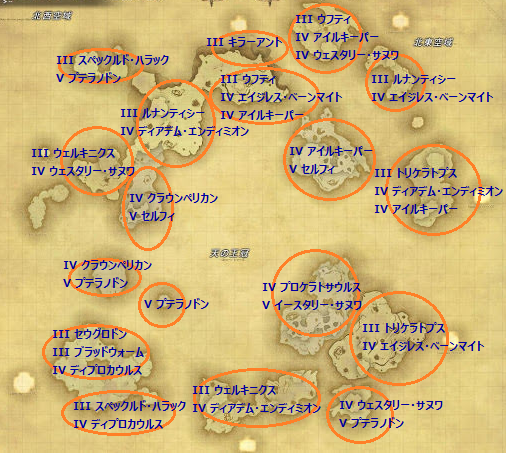 北西空域
III ウフティ
IV アイルキーパー
IV ウェスタリー・サヌワ
III キラーアント
北東空域
III スペックルド・ハラック
V プテラノドン
III ウフティ
IV エイジレス・ベーンマイト
IV アイルキーパー
III ルナンティシー
IV エイジレス・ベーンマイト
III ルナンティシー
IV ディアデム・エンディミオン
III ウェルキニクス
IV ウェスタリー・サヌワ
IV アイルキーパー
V セルフィ
III トリケラトプス
IV ディアデム・エンディミオン
IV アイルキーパー
IV クラウンペリカン
V セルフィ
IV クラウンペリカン
V プテラノドン
V プテラノドン
IV プロケラトサウルス
V イースタリー・サヌワ
III トリケラトプス
IV エイジレス・ベーンマイト
III セウグロドン
III ブラッドウォーム
IV ディプロカウルス
III スペックルド・ハラック
IV ディプロカウルス
III ウェルキニクス
IV ディアデム・エンディミオン
IV ウェスタリー・サヌワ
V プテラノドン